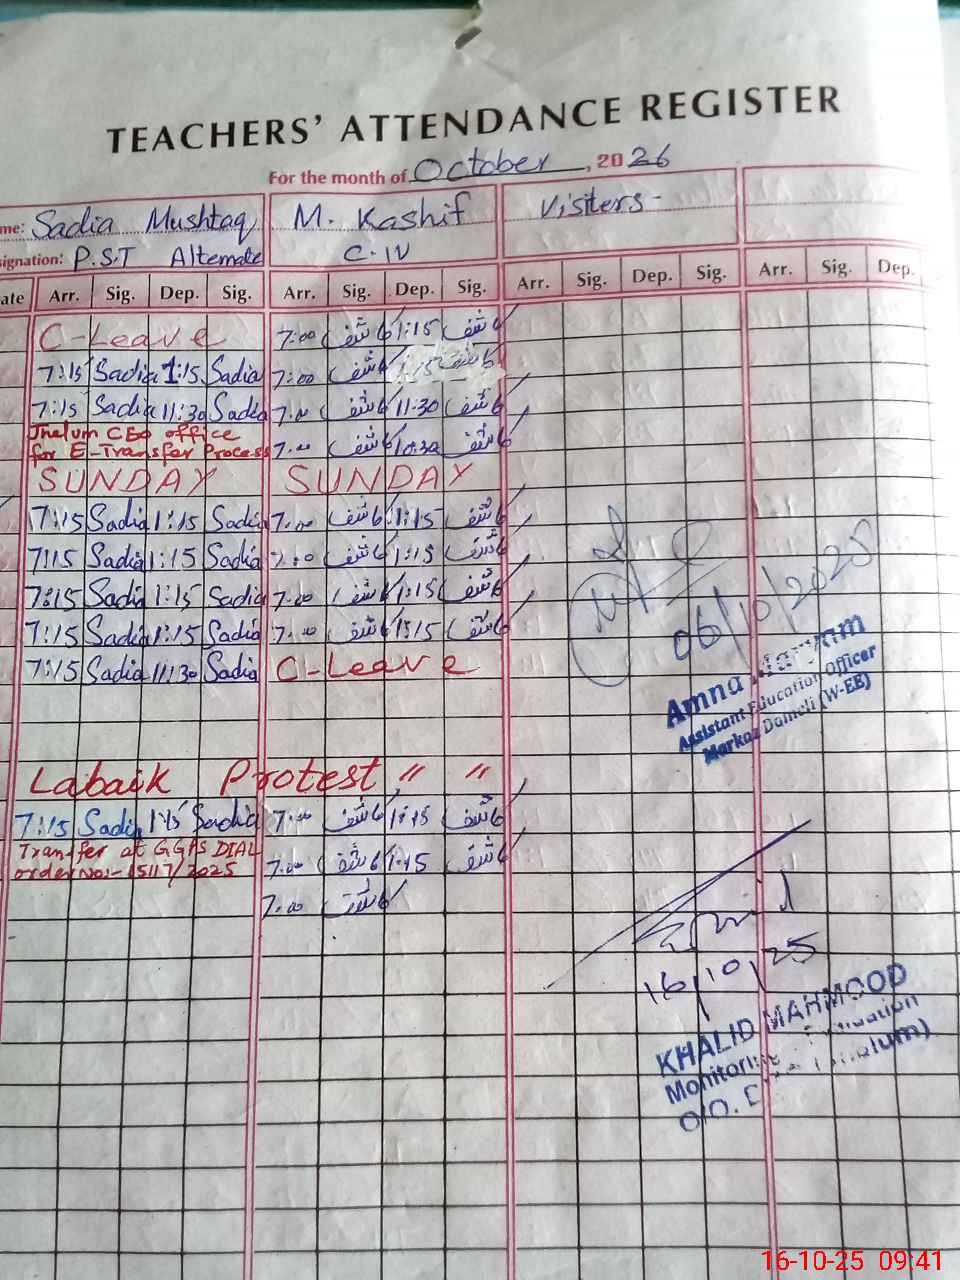 TEACHERS' ATTENDANCE REGISTER
For the month of October, 2026
me: Sadia Mushtaq M. Kashif Visiters-
signation: P.S.T Alternate C.IV
ate Arr. Sig. Dep. Sig. Arr. Sig. Dep. Sig. Arr. Sig. Dep. Sig. Arr. Sig. Dep.
C-Leave 7:00 کاشف 1:15 کاشف
7:15 Sadia 1:15 Sadia 7:00 کاشف 1:15 کاشف
7:15 Sadia 11:30 Sadia 7:00 کاشف 11:30 کاشف
Jhelum CEO office
for E-Transfer Process 7:00 کاشف 10:30 کاشف
SUNDAY SUNDAY
7:15 Sadia 1:15 Sadia 7:00 کاشف 1:15 کاشف
7:15 Sadia 1:15 Sadia 7:00 کاشف 1:15 کاشف
7:15 Sadia 1:15 Sadia 7:00 کاشف 1:15 کاشف
7:15 Sadia 1:15 Sadia 7:00 کاشف 1:15 کاشف
7:15 Sadia 11:30 Sadia C-Leave
06/10/2025
Amna
Assistant Education Officer
Markaz Domeli (W-EE)
Labaik Protest " "
7:15 Sadia 1:15 Sadia 7:00 کاشف 1:15 کاشف
Transfer at GGPS DIAL
order No:- 15117/2025 7:00 کاشف 1:15 کاشف
7:00 کاشف
16/10/25
KHALID MAHMOOD
Monitoring
O/O.
16-10-25 09:41